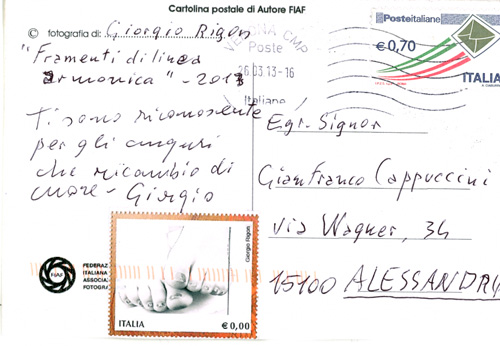 Cartolina postale di Autore FIAF
© fotografia di: Giorgio Rigon
"Framenti di linea
armonica" - 2013
Ti sono riconoscente
per gli auguri
che ricambio di
cuore - Giorgio
VERONA CMP
Poste
26 03 13-16
Italiane
Posteitaliane
€ 0,70
ITALIA
Egr. Signor
Gianfranco Cappuccini
via Wagner, 34
15100 ALESSANDRIA
FIAF
FEDERAZ
ITALIANA
ASSOCIA
FOTOGRA
Giorgio Rigon
ITALIA
€ 0,00